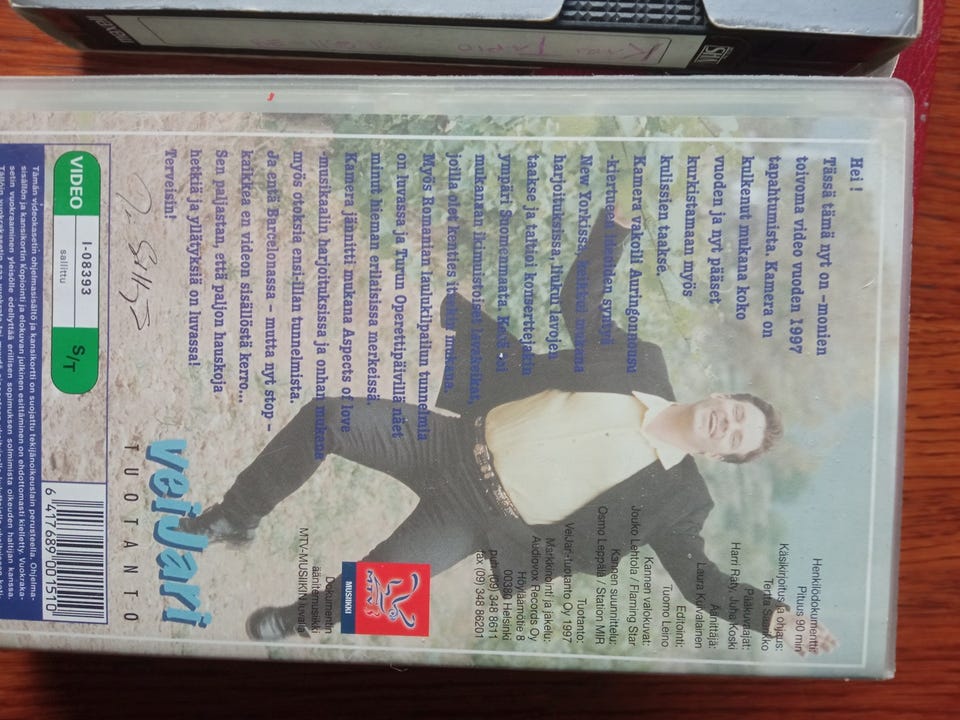 SHK
Kari Tapio
Hei!
Tässä tämä nyt on – monien
toivoma video vuoden 1997
tapahtumista. Kamera on
kulkenut mukana koko
vuoden ja nyt pääset
kurkistamaan myös
kulissien taakse.
Kamera vakoili Auringonnousu
-kiertueen ideoiden syntyä
New Yorkissa, keikkui mukana
harjoituksissa, hiukui lavojen
taakse ja taltioi konserttejani
ympäri Suomenmaata.
mukanaan ikimuistoisia
joilla olet kenties itse mukana.
Myös Romanian laulukilpailun tunnelmia
on luvassa ja Turun Operettipäivillä näet
minut hieman erilaisissa merkeissä.
Kamera jännitti mukana Aspects of love
-musikaalin harjoituksissa ja onhan mukana
myös otoksia ensi-illan tunnelmista.
Ja entä Barcelonassa – mutta nyt stop –
kaikkea en videon sisällöstä kerro...
Sen paljastan, että paljon hauskoja
hetkiä ja yllätyksiä on luvassa!
Terveisin!
Henkilödokumentti
Pituus 90 min
Käsikirjoitus ja ohjaus:
Terttu Saarikko
Pääkuvaajat:
Harri Räty, Juha Koski
Äänittäjä:
Laura Kuivalainen
Editointi:
Tuomo Leino
Kannen valokuvat:
Jouko Lehtola / Flaming Star
Kannen suunnittelu:
Osmo Leppälä / Station MIR
Tuotanto:
VeiJari-tuotanto Oy 1997
Markkinointi ja jakelu:
Audiovox Records Oy
Höyläämötie 8
00380 Helsinki
puh. (09) 348 8611
fax (09) 348 86201
MUSIIKKI
Dokumentin
äänitemusiikki
MTV-MUSIIKIN luvalla
veiJari
TUOTANTO
VIDEO
I-08393
sallittu
S/T
6 417689 001510
Tämän videokasetin ohjelmasisältö ja kansikortti on suojattu tekijänoikeuslain perusteella. Ohjelma-
sisällön ja kansikortin kopiointi ja elokuvan julkinen esittäminen on ehdottomasti kielletty. Vuokraka-
setin vuokraaminen yleisölle edellyttää erillisen sopimuksen solmimista oikeuden haltijan kanssa.